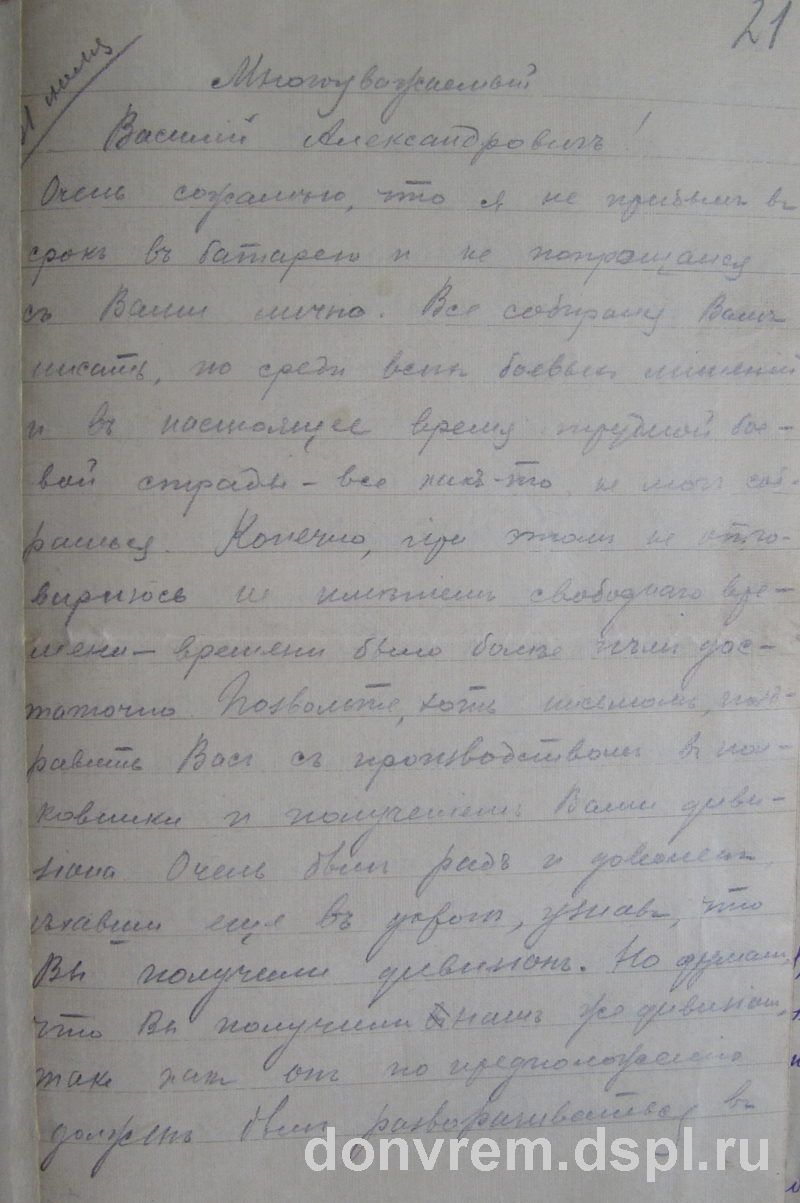 21
июля
Многоуважаемый
Василий Александровичъ!
Очень сожалѣю, что я не прибылъ въ
срокъ въ батарею и не попрощался
съ Вами лично. Все собираюсь Вамъ
писать, но среди всѣхъ боевыхъ
и въ настоящее время трудной бое-
вой страды – все какъ-то не могъ соб-
раться. Конечно, при этомъ не отго-
вариваюсь не имѣніемъ свободнаго вре-
мени – времени было болѣе чѣмъ дос-
таточно. Позвольте, хоть письмомъ, позд-
равить Васъ съ производствомъ въ пол-
ковники и полученіемъ Вами диви-
зіона Очень былъ радъ и доволенъ
ѣхавши еще въ, узнавъ, что
Вы получили дивизіонъ. Но думалъ,
что Вы получили нашъ же дивизіонъ,
такъ какъ онъ по предположенію
долженъ былъ разворачиваться въ
donvrem.dspl.ru